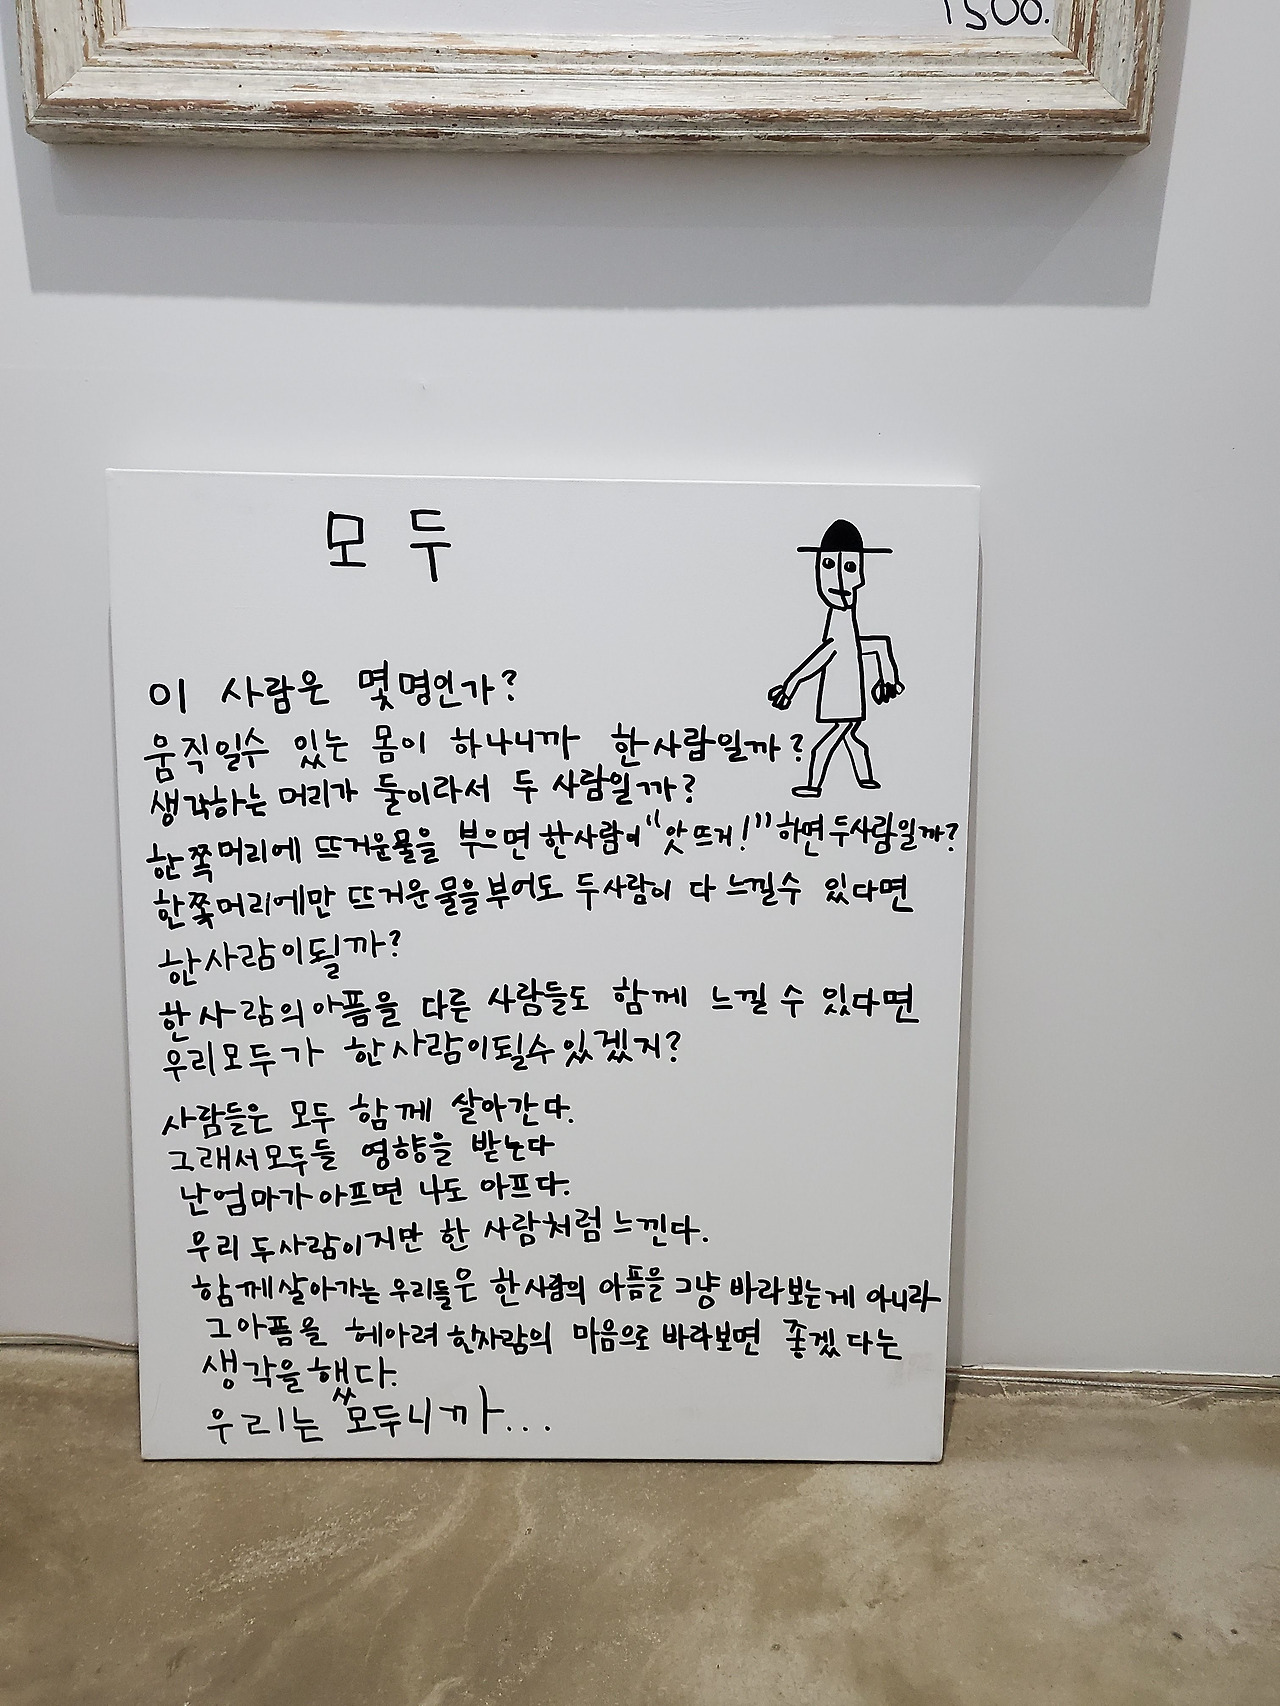 1500.
모두
이 사람은 몇명인가?
움직일수 있는 몸이 하나니까 한사람일까?
생각하는 머리가 둘이라서 두 사람일까?
한쪽머리에 뜨거운물을 부으면 한사람이 "앗뜨거!" 하면 두사람일까?
한쪽머리에만 뜨거운물을부어도 두사람이 다 느낄수 있다면
한사람이될까?
한사람의아픔을 다른 사람들도 함께 느낄 수 있다면
우리모두가 한사람이될수있겠지?
사람들은 모두 함께 살아간다.
그래서모두들 영향을 받는다
난엄마가아프면 나도 아프다.
우리 두사람이지만 한 사람처럼 느낀다.
함께살아가는 우리들은 한사람의 아픔을 그냥 바라보는게 아니라
그아픔을 헤아려 한사람의 마음으로 바라보면 좋겠다는
생각을했다.
우리는 모두니까...